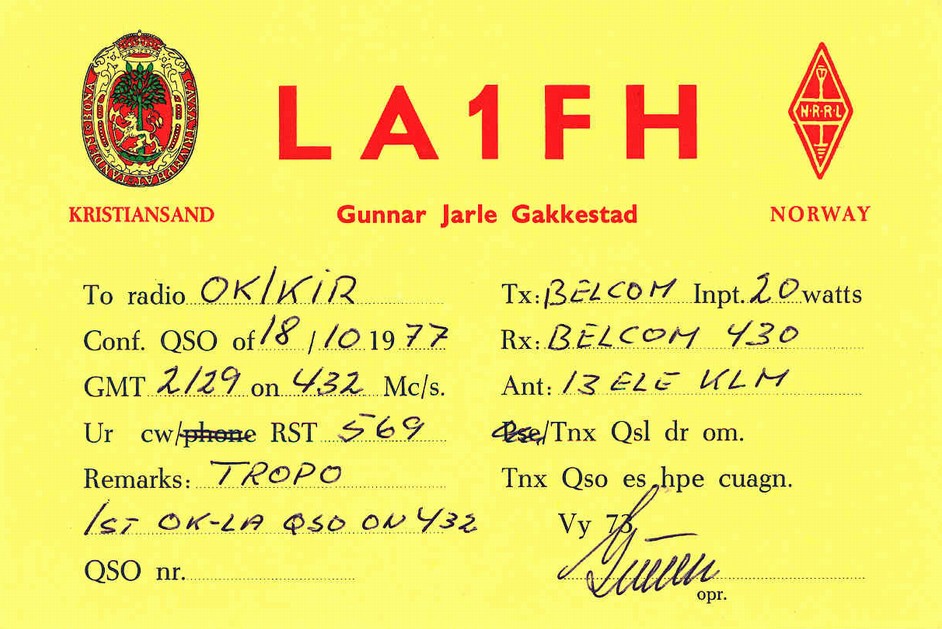 LA1FH
N·R·R·L
KRISTIANSAND
Gunnar Jarle Gakkestad
NORWAY
To radio OK1KIR
Conf. QSO of 18/10 1977
GMT 2129 on 432 Mc/s.
Ur cw/phone RST 569
Remarks: TROPO
1ST OK-LA QSO ON 432
QSO nr.
Tx: BELCOM Inpt. 20 watts
Rx: BELCOM 430
Ant: 13 ELE KLM
Pse/Tnx Qsl dr om.
Tnx Qso es hpe cuagn.
Vy 73
Gunnar
opr.